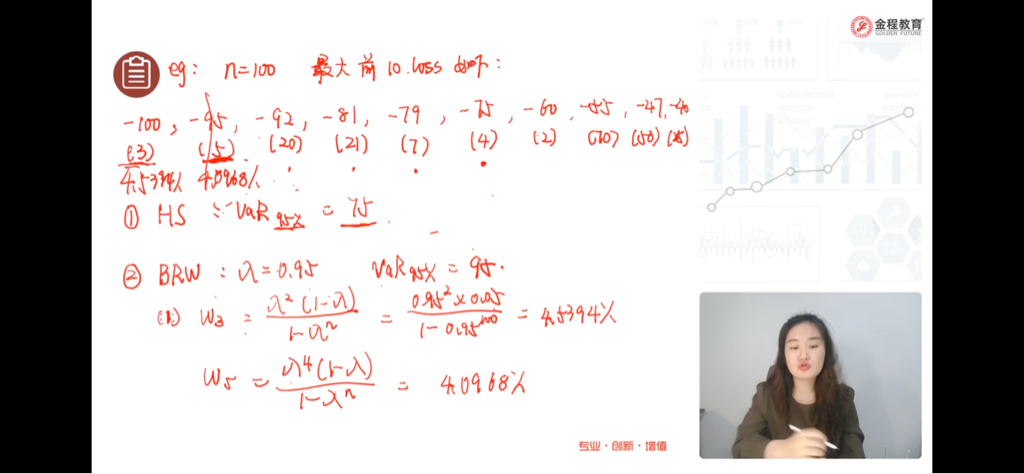 金程教育
GOLDEN FUTURE
eg: n=100 最大前10.loss如下:
-100, -95, -92, -81, -79, -75, -60, -55, -47, -40
(3) (5) (20) (21) (7) (4) (2) (70) (50) (25)
4.5394% 4.0968%
① HS : VaR95% = 75
② BRW : λ=0.95 VaR95% = 95.
(1) W3 = λ²(1-λ) / 1-λⁿ = 0.95²×0.05 / 1-0.95¹⁰⁰ = 4.5394%
W5 = λ⁴(1-λ) / 1-λⁿ = 4.0968%
专业·创新·增值